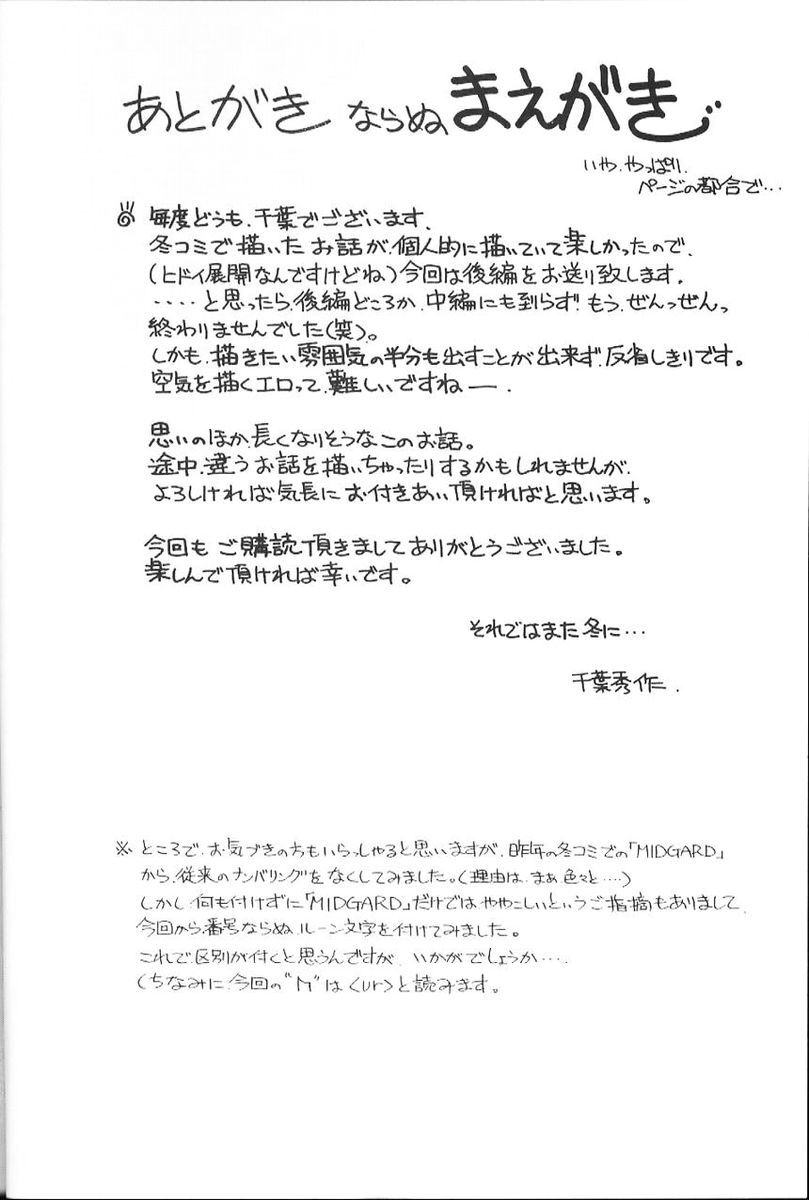 あとがきならぬ、まえがき
いや、やっぱり、
ページの都合で…
毎度どうも、千葉でございます。
冬コミで描いたお話が、個人的に描いていて楽しかったので、
(ヒドイ展開なんですけどね)今回は後編をお送り致します。
‥‥と思ったら、後編どころか、中編にも到らず!もう、ぜんっぜんっ
終わりませんでした(笑)。
しかも、描きたい雰囲気の半分も出すことが出来ず、反省しきりです。
空気を描くエロって、難しいですねー。
思いのほか、長くなりそうなこのお話。
途中、違うお話を描いちゃったりするかもしれませんが、
よろしければ気長にお付きあい頂ければと思います。
今回もご購読頂きましてありがとうございました。
楽しんで頂ければ幸いです。
それではまた冬に…
千葉秀作.
※ところで、お気づきの方もいらっしゃると思いますが、昨年の冬コミでの「MIDGARD」
から、従来のナンバリングをなくしてみました。(理由は、まぁ色々と‥‥)
しかし何も付けずに「MIDGARD」だけではややこしいというご指摘もありまして、
今回から番号ならぬ、ルーン文字を付けてみました。
これで区別が付くと思うんですが、いかがでしょうか‥‥.
(ちなみに、今回の"ᚢ"は<ur>と読みます。